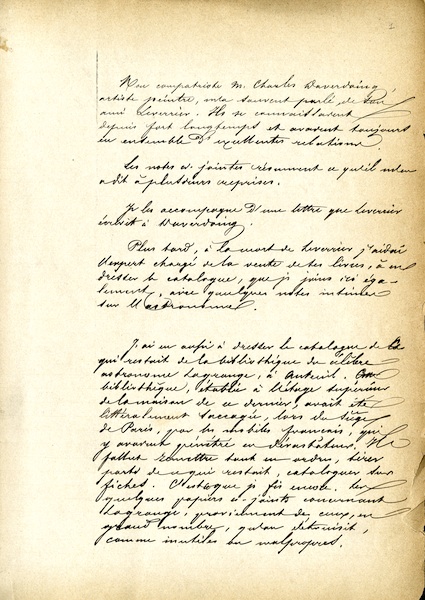 Mon compatriote M. Charles Daverdoing,
artiste peintre, m'a souvent parlé de son
ami Leverrier. Ils se connaissaient
depuis fort longtemps et avaient toujours
eu ensemble d'excellentes relations.
Les notes ci-jointes résument ce qu'il m'en
a dit à plusieurs reprises.
Je les accompagne d'une lettre que Leverrier
écrivit à Daverdoing.
Plus tard, à la mort de Leverrier j'aidai
l'expert chargé de la vente de ses livres, à en
dresser le catalogue, que je joins ici éga-
lement, avec quelques notes intimes
sur l'astronome.
J'ai eu aussi à dresser le catalogue de ce
qui restait de la bibliothèque du célèbre
astronome Lagrange, à Auteuil.
bibliothèque, établie à l'étage supérieur
de la maison de ce dernier, avait été
littéralement saccagée, lors du siège
de Paris, par les mobiles français, qui
y avaient pénétré en dévastateurs. Il
fallut remettre tout en ordre, tirer
parti de ce qui restait, cataloguer sur
fiches. C'est ce que je fis encore. Les
quelques papiers ci-joints concernant
Lagrange, proviennent de ceux, en
grand nombre, qu'on détruisit,
comme inutiles ou malpropres.